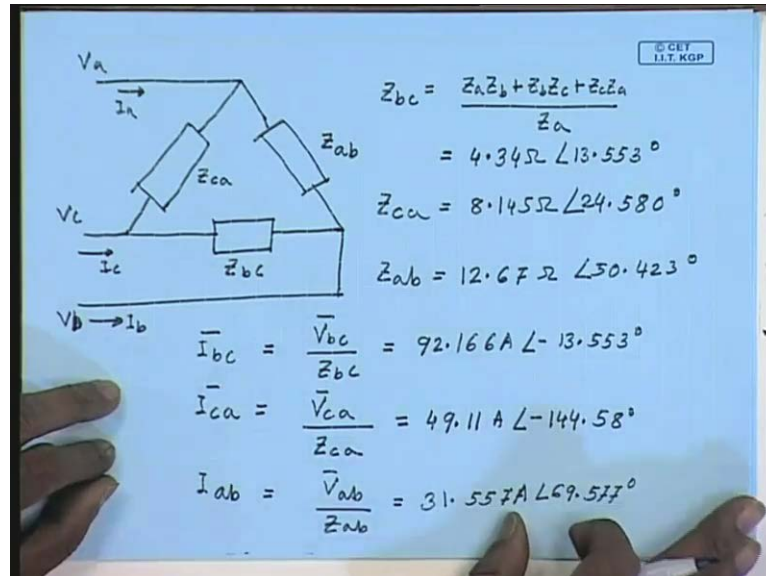 © CET
I.I.T. KGP
Va
Ia
Zca
Zab
Vc
Ic
Zbc
Vb → Ib
Zbc = ZaZb + ZbZc + ZcZa / Za
= 4.34Ω ∠13.553°
Zca = 8.145Ω ∠24.580°
Zab = 12.67 Ω ∠50.423°
I̅bc = V̅bc / Zbc = 92.166A ∠- 13.553°
I̅ca = V̅ca / Zca = 49.11 A ∠-144.58°
Iab = V̅ab / Zab = 31.557A ∠69.577°